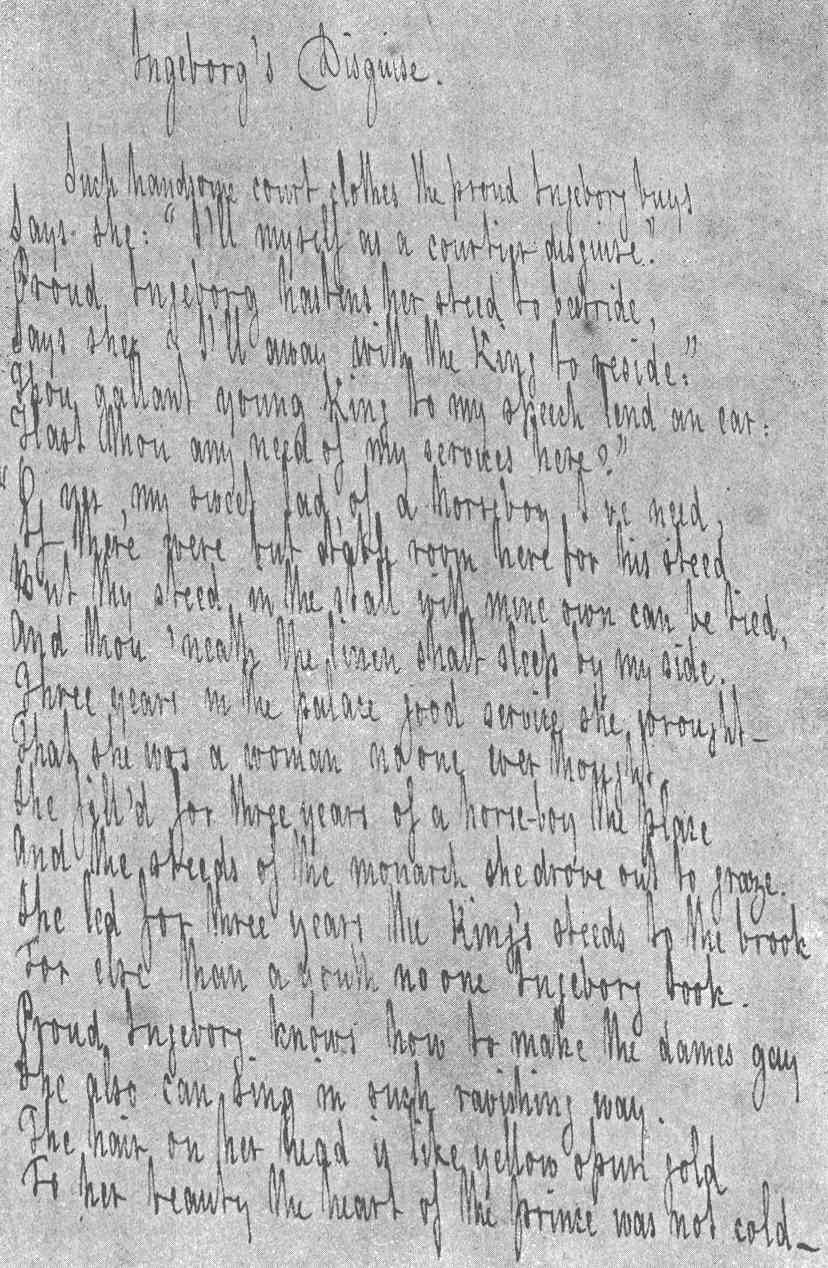 Ingeborg's Disguise.
Such handsome court clothes the proud Ingeborg buys
Says she: "I'll myself as a courtier disguise."
Proud Ingeborg hastens her steed to bestride,
Says she: "I'll away with the King to reside:"
Thou gallant young King to my speech lend an ear:
Hast thou any need of my services here?"
"O yes, my sweet lad of a horseboy I've need,
If there were but stable room here for his steed
But thy steed in the stall with mine own can be tied,
And thou 'neath the linen shalt sleep by my side.
Three years in the palace good service she wrought—
That she was a woman no one ever thought.
She fill'd for three years of a horse-boy the place
And the steeds of the monarch she drove out to graze.
She led for three years the King's steeds to the brook
For else than a youth no one Ingeborg took.
Proud Ingeborg knows how to make the dames gay
She also can sing in such ravishing way.
The hair on her head is like yellow spun gold
To her beauty the heart of the prince was not cold—